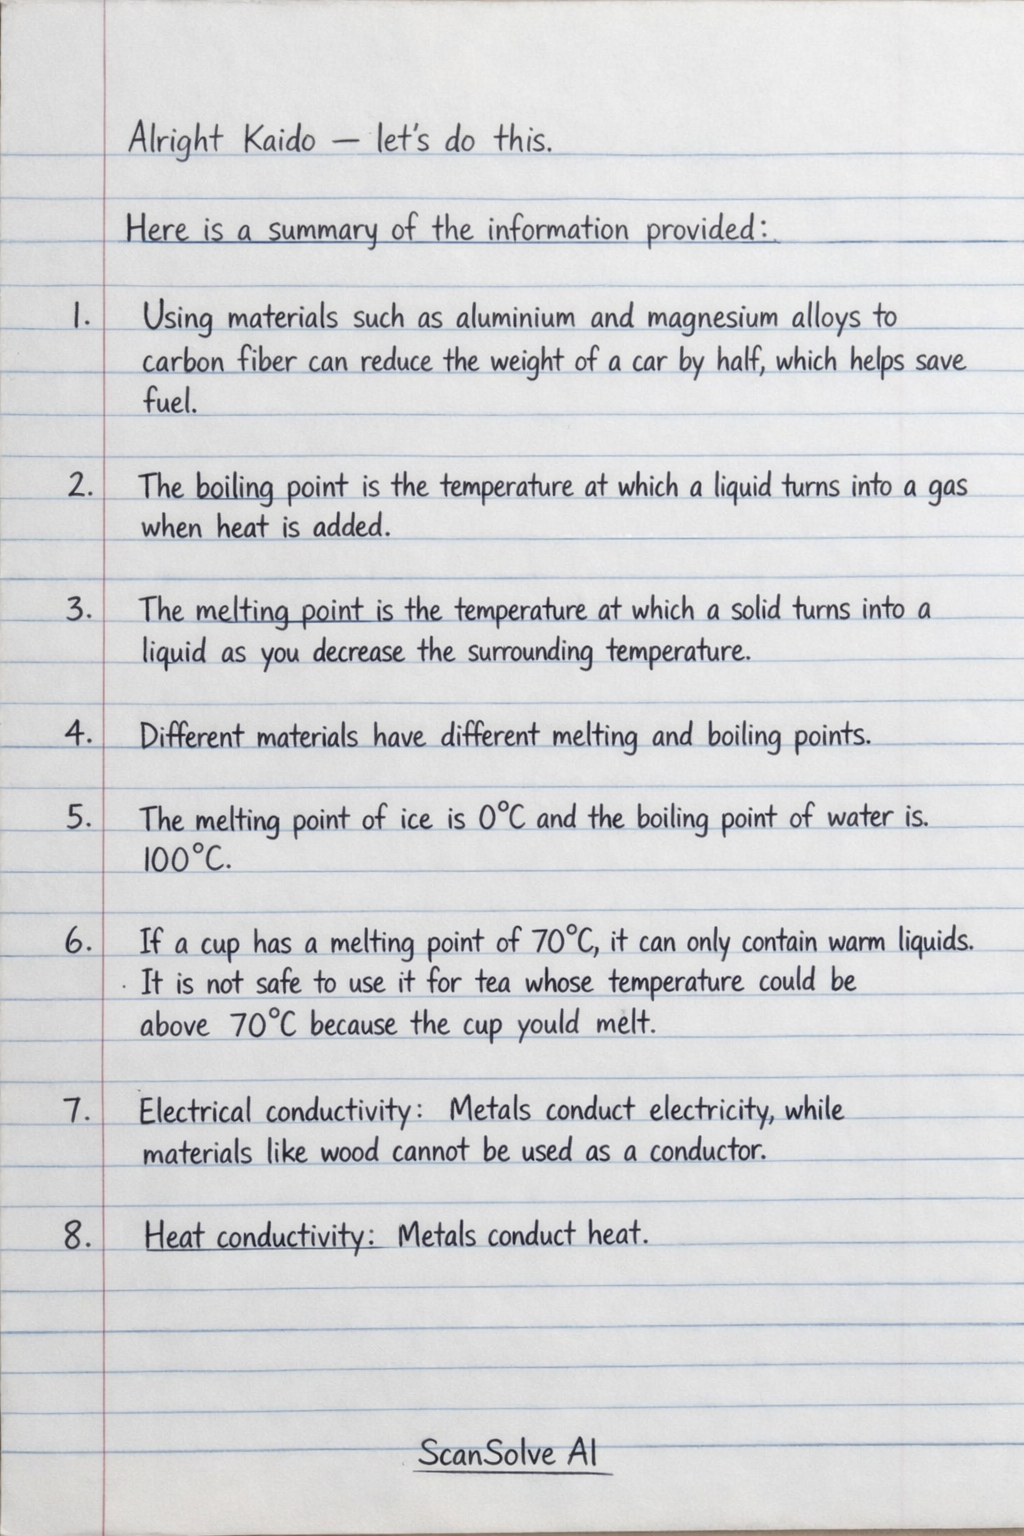 Alright Kaido — let's do this.
Here is a summary of the information provided:
1. Using materials such as aluminium and magnesium alloys to
carbon fiber can reduce the weight of a car by half, which helps save
fuel.
2. The boiling point is the temperature at which a liquid turns into a gas
when heat is added.
3. The melting point is the temperature at which a solid turns into a
liquid as you decrease the surrounding temperature.
4. Different materials have different melting and boiling points.
5. The melting point of ice is 0°C and the boiling point of water is.
100°C.
6. If a cup has a melting point of 70°C, it can only contain warm liquids.
It is not safe to use it for tea whose temperature could be
above 70°C because the cup yould melt.
7. Electrical conductivity: Metals conduct electricity, while
materials like wood cannot be used as a conductor.
8. Heat conductivity: Metals conduct heat.
ScanSolve AI